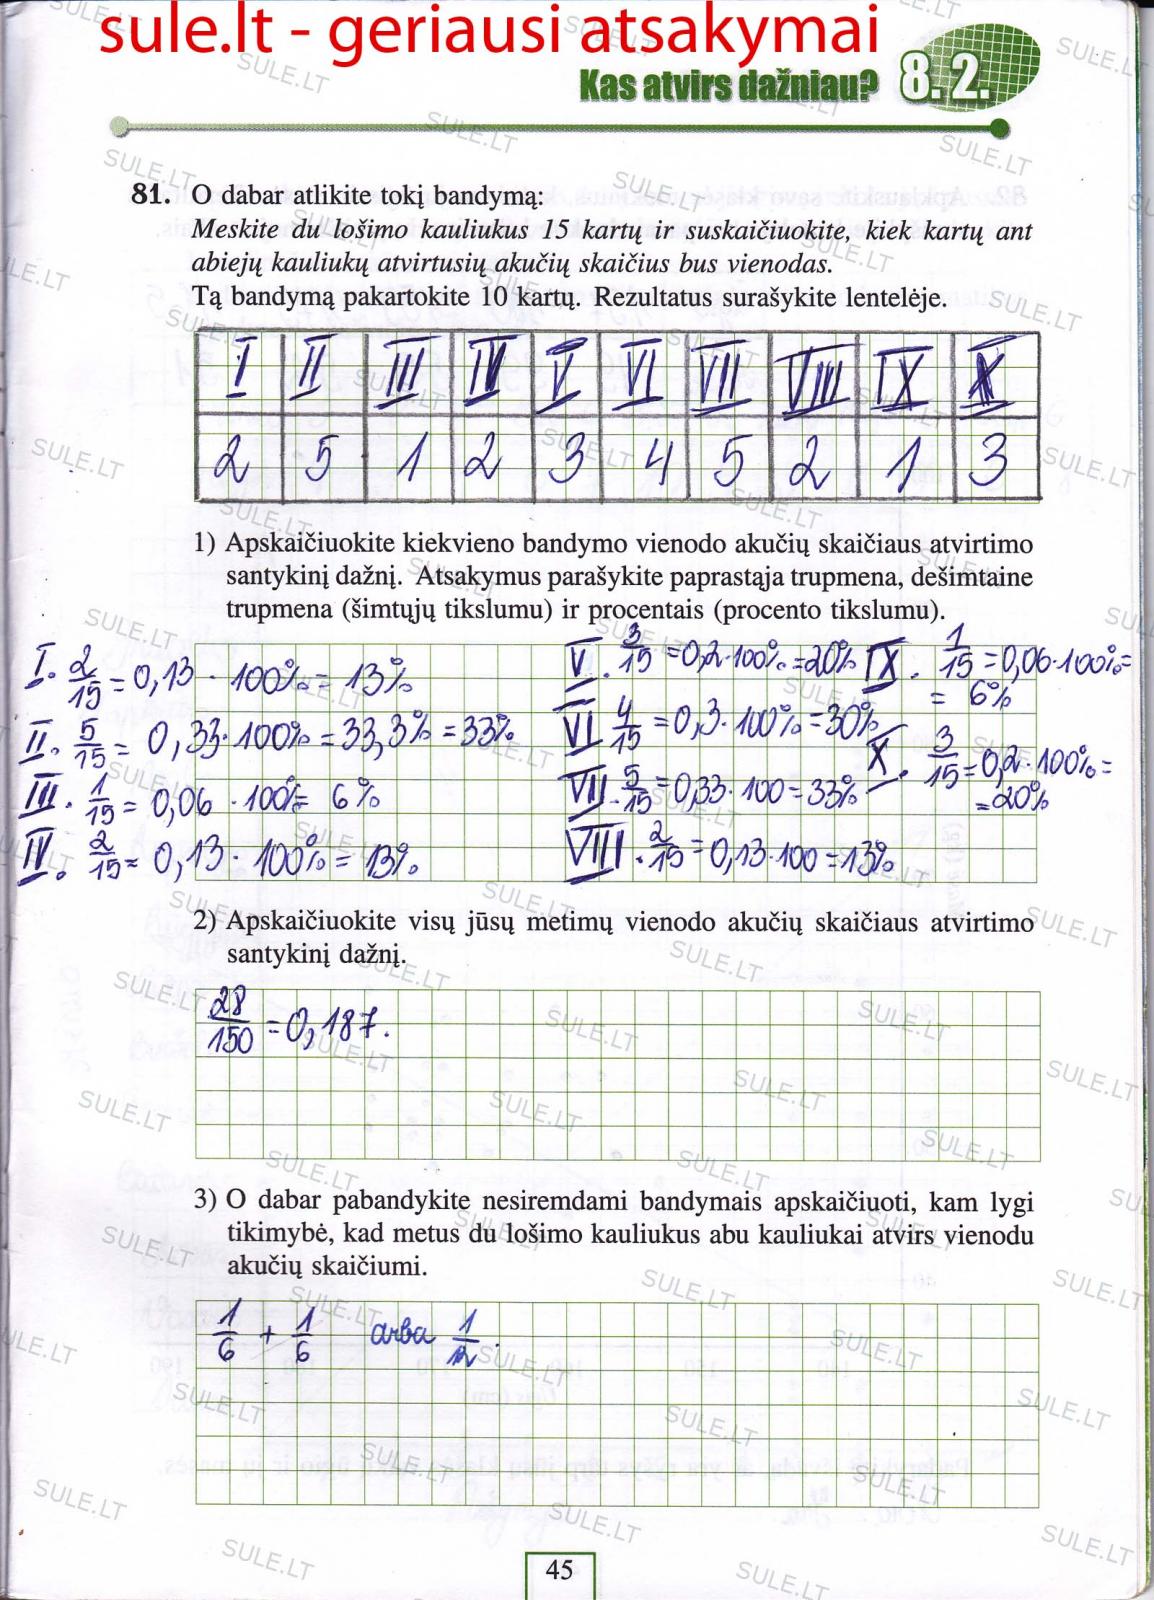 sule.lt - geriausi atsakymai
Kas atvirs dažniau? 8.2.
81. O dabar atlikite tokį bandymą:
Meskite du lošimo kauliukus 15 kartų ir suskaičiuokite, kiek kartų ant
abiejų kauliukų atvirtusių akučių skaičius bus vienodas.
Tą bandymą pakartokite 10 kartų. Rezultatus surašykite lentelėje.
I II III IV V VI VII VIII IX X
2 5 1 2 3 4 5 2 1 3
1) Apskaičiuokite kiekvieno bandymo vienodo akučių skaičiaus atvirtimo
santykinį dažnį. Atsakymus parašykite paprastąja trupmena, dešimtaine
trupmena (šimtųjų tikslumu) ir procentais (procento tikslumu).
I. 2/15 = 0,13 · 100% = 13%
II. 5/15 = 0,33 · 100% = 33,3% = 33%
III. 1/15 = 0,06 · 100% = 6%
IV. 2/15 = 0,13 · 100% = 13%
V. 3/15 = 0,2 · 100% = 20%
VI 4/15 = 0,3 · 100% = 30%
VII. 5/15 = 0,33 · 100 = 33%
VIII. 2/15 = 0,13 · 100 = 13%
IX. 1/15 = 0,06 · 100% =
= 6%
X. 3/15 = 0,2 · 100% =
= 20%
2) Apskaičiuokite visų jūsų metimų vienodo akučių skaičiaus atvirtimo
santykinį dažnį.
28/150 = 0,187.
3) O dabar pabandykite nesiremdami bandymais apskaičiuoti, kam lygi
tikimybė, kad metus du lošimo kauliukus abu kauliukai atvirs vienodu
akučių skaičiumi.
1/6 + 1/6 arba 1/12.
45
SULE.LT